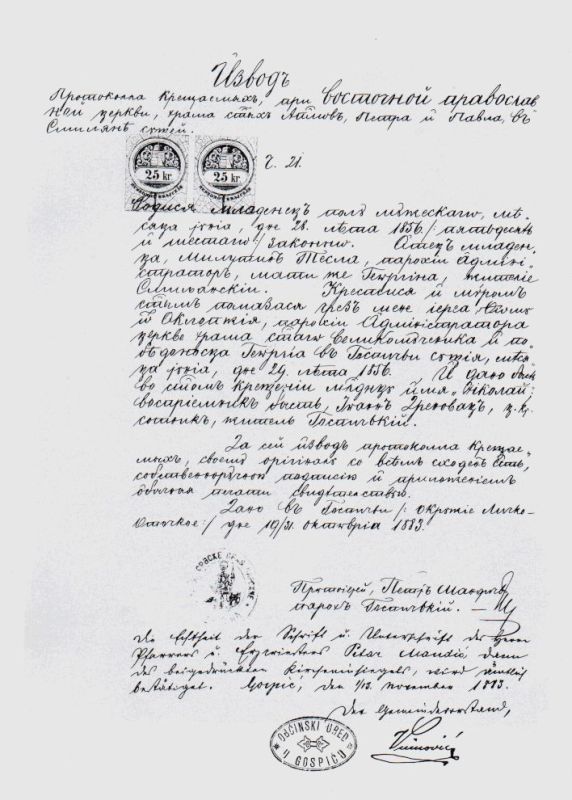 Изводъ
Протокола Крещаемыхъ, при восточной православ
ной церкви, храма стыхъ Апловъ, Петра и Павла, въ
Смилянѣ сущей.
25 kr. 25 kr.
Ч. 21.
Родися младенецъ пола мужескаго, мѣ-
сяца јунiа, дне 28. лѣта 1856./пятьдесятъ
и шестаго/ законно. Отецъ младен-
ца, Милутинъ Тесла, парохiи Админи-
страторъ, мати же Геѡргiна, жителiе
Смилянскiи. Крестися и мѵромъ
стымъ помазася чрезъ мене iереа,
церкве храма стаго Великомученика и по-
бѣдоносца Геѡргiа въ Госпичѣ сущiа, мѣся-
ца јулiа, дне 24. лѣта 1856. И дано
во стомъ крещенiи младенцу имя „Нiколай,
воспрiемникъ бысть, Iоанъ Дреновацъ, ц. кр.
сотникъ, житель Госпичькiй.
За сей изводъ протокола Крещае-
мыхъ, своему оригiналу со всѣмъ сходенъ есть,
собственноручною подписiю и приложенiемъ
обычныя печати свидѣтелствую.
Дано въ Госпичѣ /: окружiе Личко-
Оточкое:/ дне 19/31. октомврiа 1883.
Протоiерей, Петръ Мандичъ
парохъ Госпичькiй.
Die Echtheit der Schrift u. Unterschrift des Herrn
Pfarrers u. Erzpriesters Petar Mandić dann
des beigedrückten Kirchensiegels, wird ämtlich
bestätiget. Gospić, den 1/13. November 1883.
Der Gemeindevorstand,
OBĆINSKI URED
U GOSPIĆU